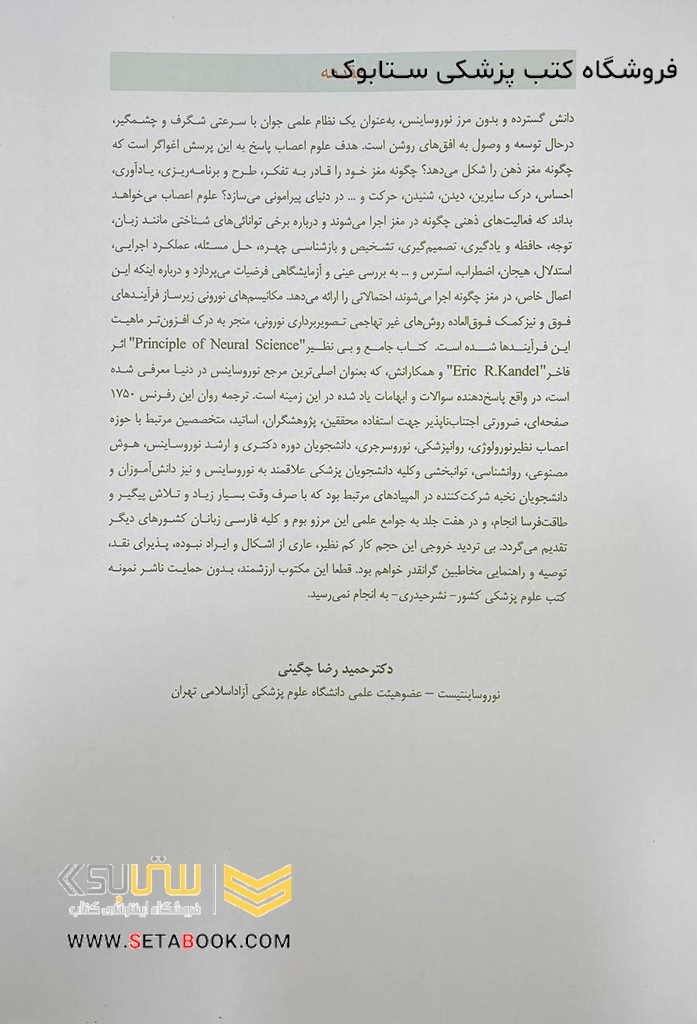 فروشگاه کتب پزشکی ستابوک
دانش گسترده و بدون مرز نوروساینس، به‌عنوان یک نظام علمی جوان با سرعتی شگرف و چشمگیر،
درحال توسعه و وصول به افق‌های روشن است. هدف علوم اعصاب پاسخ به این پرسش اغواگر است که
چگونه مغز ذهن را شکل می‌دهد؟ چگونه مغز خود را قادر به تفکر، طرح و برنامه‌ریزی، یادآوری،
احساس، درک سایرین، دیدن، شنیدن، حرکت و ... در دنیای پیرامونی می‌سازد؟ علوم اعصاب می‌خواهد
بداند که فعالیت‌های ذهنی چگونه در مغز اجرا می‌شوند و درباره برخی توانائی‌های شناختی مانند زبان،
توجه، حافظه و یادگیری، تصمیم‌گیری، تشخیص و بازشناسی چهره، حل مسئله، عملکرد اجرایی،
استدلال، هیجان، اضطراب، استرس و ... به بررسی عینی و آزمایشگاهی فرضیات می‌پردازد و درباره اینکه این
اعمال خاص، در مغز چگونه اجرا می‌شوند، احتمالاتی را ارائه می‌دهد. مکانیسم‌های نورونی زیرساز فرآیندهای
فوق و نیزکمک فوق‌العاده روش‌های غیر تهاجمی تصویربرداری نورونی، منجر به درک افزون‌تر ماهیت
این فرآیندها شده است. کتاب جامع و بی نظیر"Principle of Neural Science" اثر
فاخر"Eric R.Kandel" و همکارانش، که بعنوان اصلی‌ترین مرجع نوروساینس در دنیا معرفی شده
است، در واقع پاسخ‌دهنده سوالات و ابهامات یاد شده در این زمینه است. ترجمه روان این رفرنس ۱۷۵۰
صفحه‌ای، ضرورتی اجتناب‌ناپذیر جهت استفاده محققین، پژوهشگران، اساتید، متخصصین مرتبط با حوزه
اعصاب نظیرنورولوژی، روانپزشکی، نوروسرجری، دانشجویان دوره دکتری و ارشد نوروساینس، هوش
مصنوعی، روانشناسی، توانبخشی وکلیه دانشجویان پزشکی علاقمند به نوروساینس و نیز دانش‌آموزان و
دانشجویان نخبه شرکت‌کننده در المپیادهای مرتبط بود که با صرف وقت بسیار زیاد و تلاش پیگیر و
طاقت‌فرسا انجام، و در هفت جلد به جوامع علمی این مرزو بوم و کلیه فارسی زبانان کشورهای دیگر
تقدیم می‌گردد. بی تردید خروجی این حجم کار کم نظیر، عاری از اشکال و ایراد نبوده، پذیرای نقد،
توصیه و راهنمایی مخاطبین گرانقدر خواهم بود. قطعا این مکتوب ارزشمند، بدون حمایت ناشر نمونه
کتب علوم پزشکی کشور- نشرحیدری- به انجام نمی‌رسید.
دکترحمید رضا چگینی
نوروساینتیست – عضوهیئت علمی دانشگاه علوم پزشکی آزاداسلامی تهران
ستابوک
فروشگاه اینترنتی کتاب
WWW.SETABOOK.COM